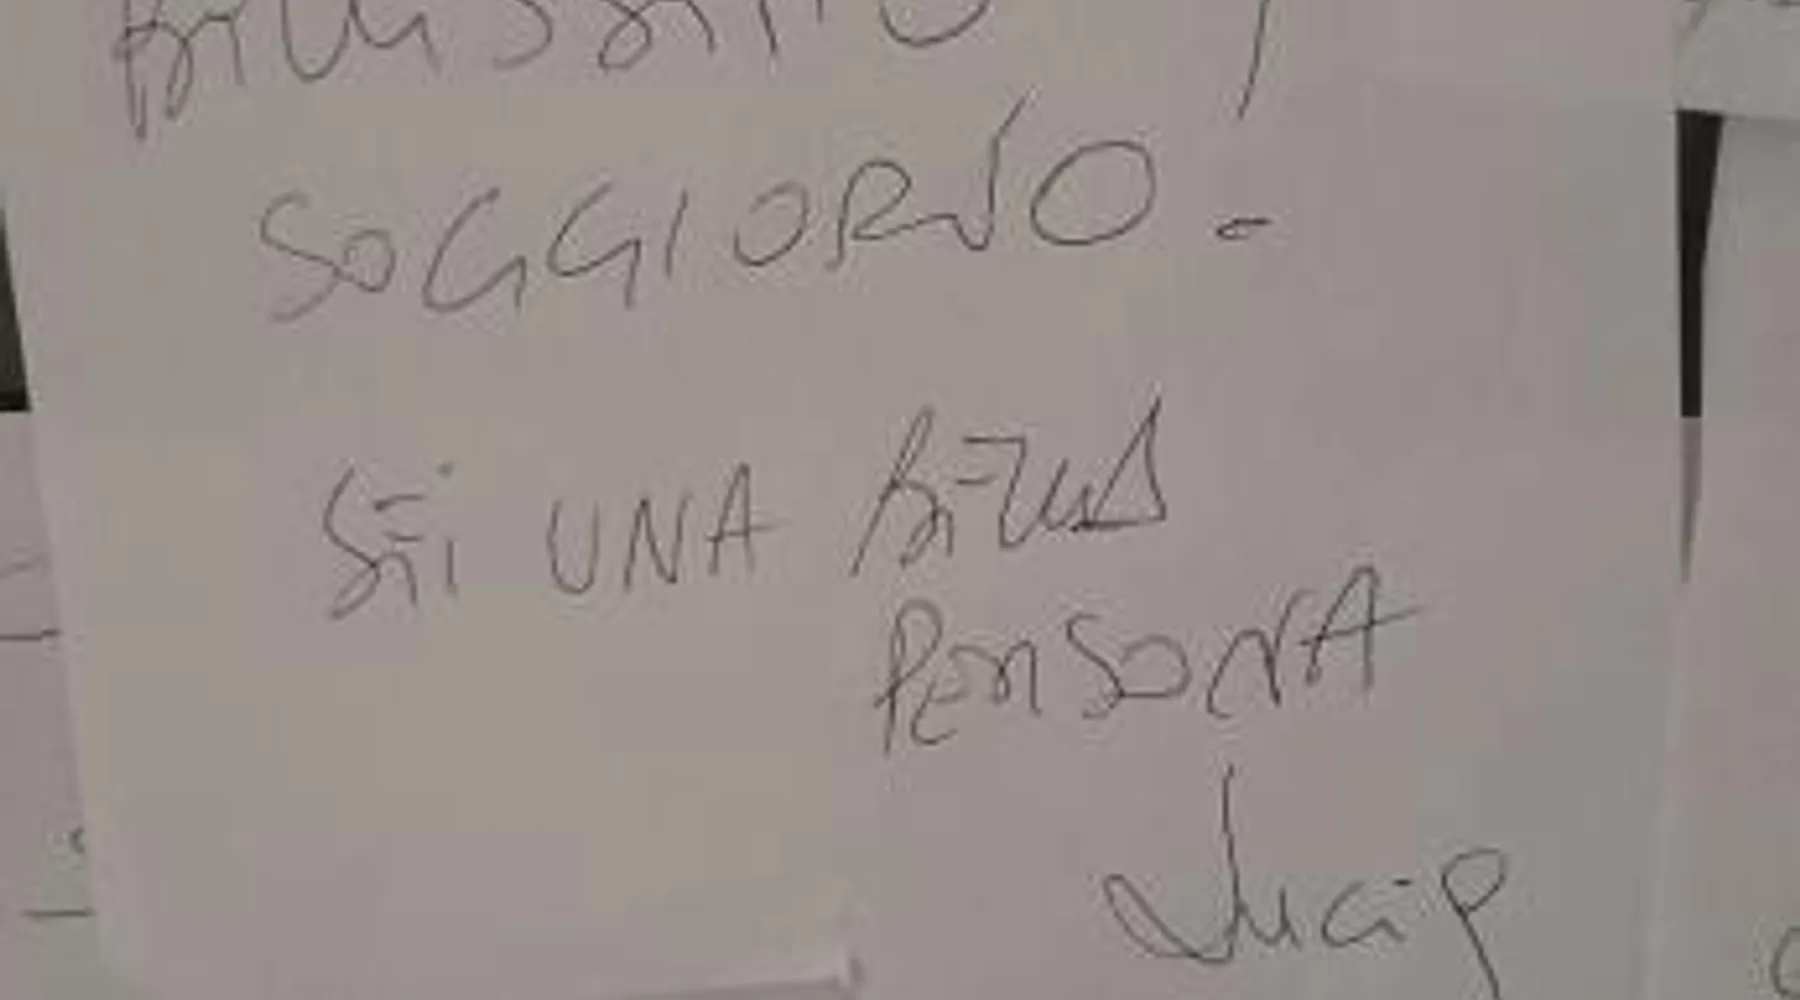 BELLISSIMO
SOGGIORNO.
SEI UNA BELLA
PERSONA